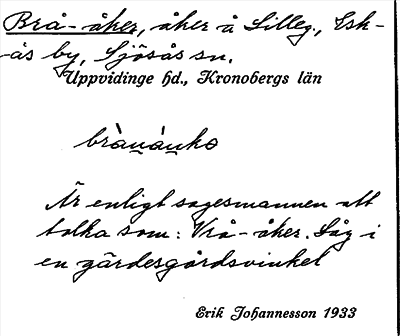 Brå-åker, åker å Lilleg., Esk-
ås by, Sjösås sn.
Uppvidinge hd., Kronobergs län
Är enligt sagesmannen att
tolka som: Vrå-åker. Låg i
en gärdesgårdsvinkel
Erik Johannesson 1933